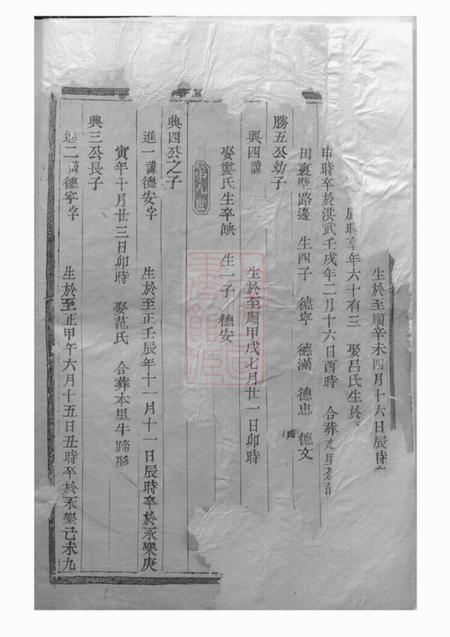 生於至順辛未四月十六日辰時
辰時享年六十有三 娶呂氏生於
申時卒於洪武壬戌年二月十六日酉時 合葬本里
田裏 路邊 生四子 德寧 德滿 德忠 德文
勝五公幼子
興四諱 生於至順甲戌七月廿一日卯時
娶 氏生卒缺 生一子 德安
第九世
興四公之子
進一諱德安字 生於至正壬辰年十一月十一日辰時卒於永樂庚
寅年十月廿三日卯時 娶范氏 合葬本里牛蹄形
興三公長子
進二諱德寧字 生於至正甲午六月十五日丑時卒於永樂己未九